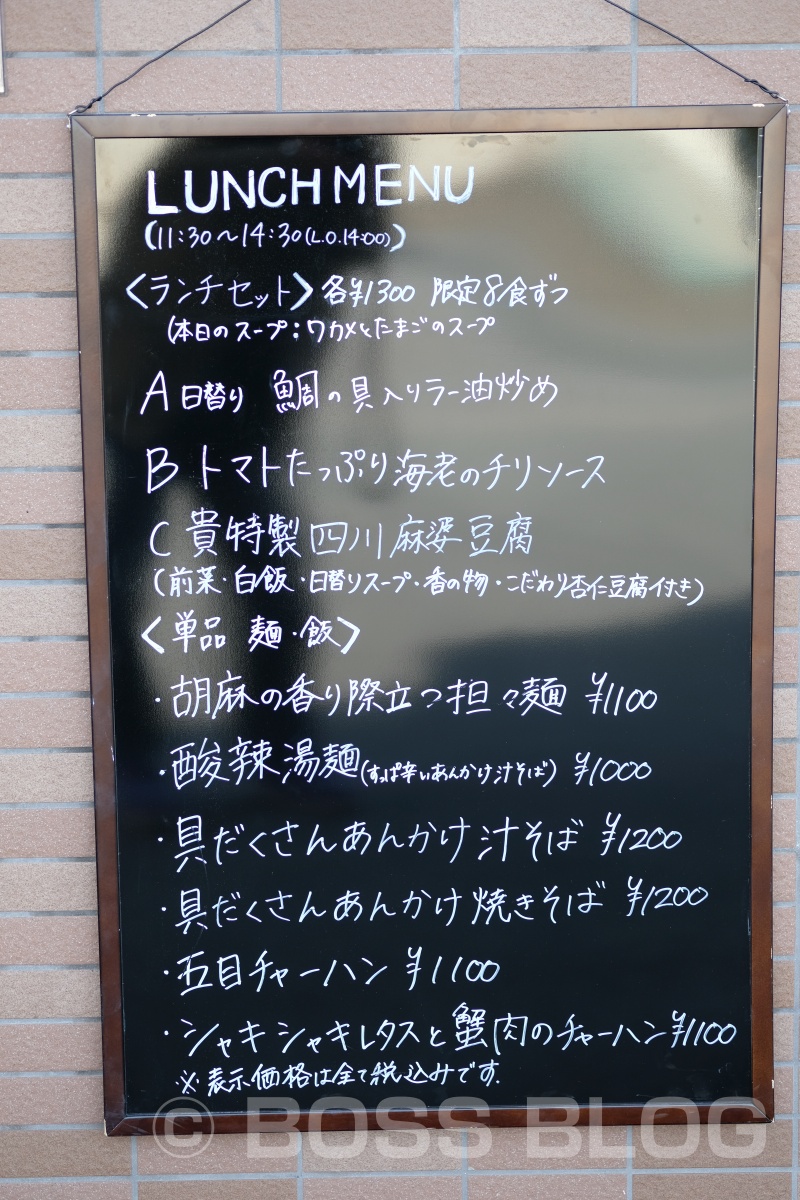 LUNCH MENU
(11:30〜14:30(L.O.14:00))
〈ランチセット〉 各¥1300 限定8食ずつ
(本日のスープ:ワカメとたまごのスープ
A 日替り 鯛の具入りラー油炒め
B トマトたっぷり海老のチリソース
C 貴特製四川麻婆豆腐
(前菜・白飯・日替りスープ・香の物・こだわり杏仁豆腐付き)
〈単品 麺・飯〉
・胡麻の香り際立つ担々麺 ¥1100
・酸辣湯麺(すっぱ辛いあんかけ汁そば) ¥1000
・具だくさんあんかけ汁そば ¥1200
・具だくさんあんかけ焼きそば ¥1200
・五目チャーハン ¥1100
・シャキシャキレタスと蟹肉のチャーハン ¥1100
※表示価格は全て税込みです.
© BOSS BLOG